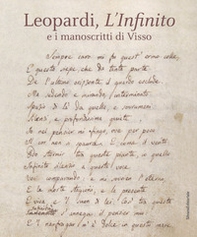 Leopardi, L'Infinito
e i manoscritti di Visso
Sempre caro mi fu quest' ermo colle,
E questa siepe, che da tanta parte
De l'ultimo orizzonte il guardo esclude.
Ma sedendo e mirando, interminato
Spazio di là da quella, e sovrumani
Silenzi, e profondissima quiete
Io nel pensier mi fingo, ove per poco
Il cor non si spaura. E come il vento
Odo stormir tra queste piante, io quello
Infinito silenzio a questa voce
Vo comparando: e mi sovvien l'eterno,
E le morte stagioni, e la presente
E viva, e 'l suon di lei. Così tra questa
Immensità s'annega il pensier mio:
E 'l naufragar m'è dolce in questo mare.